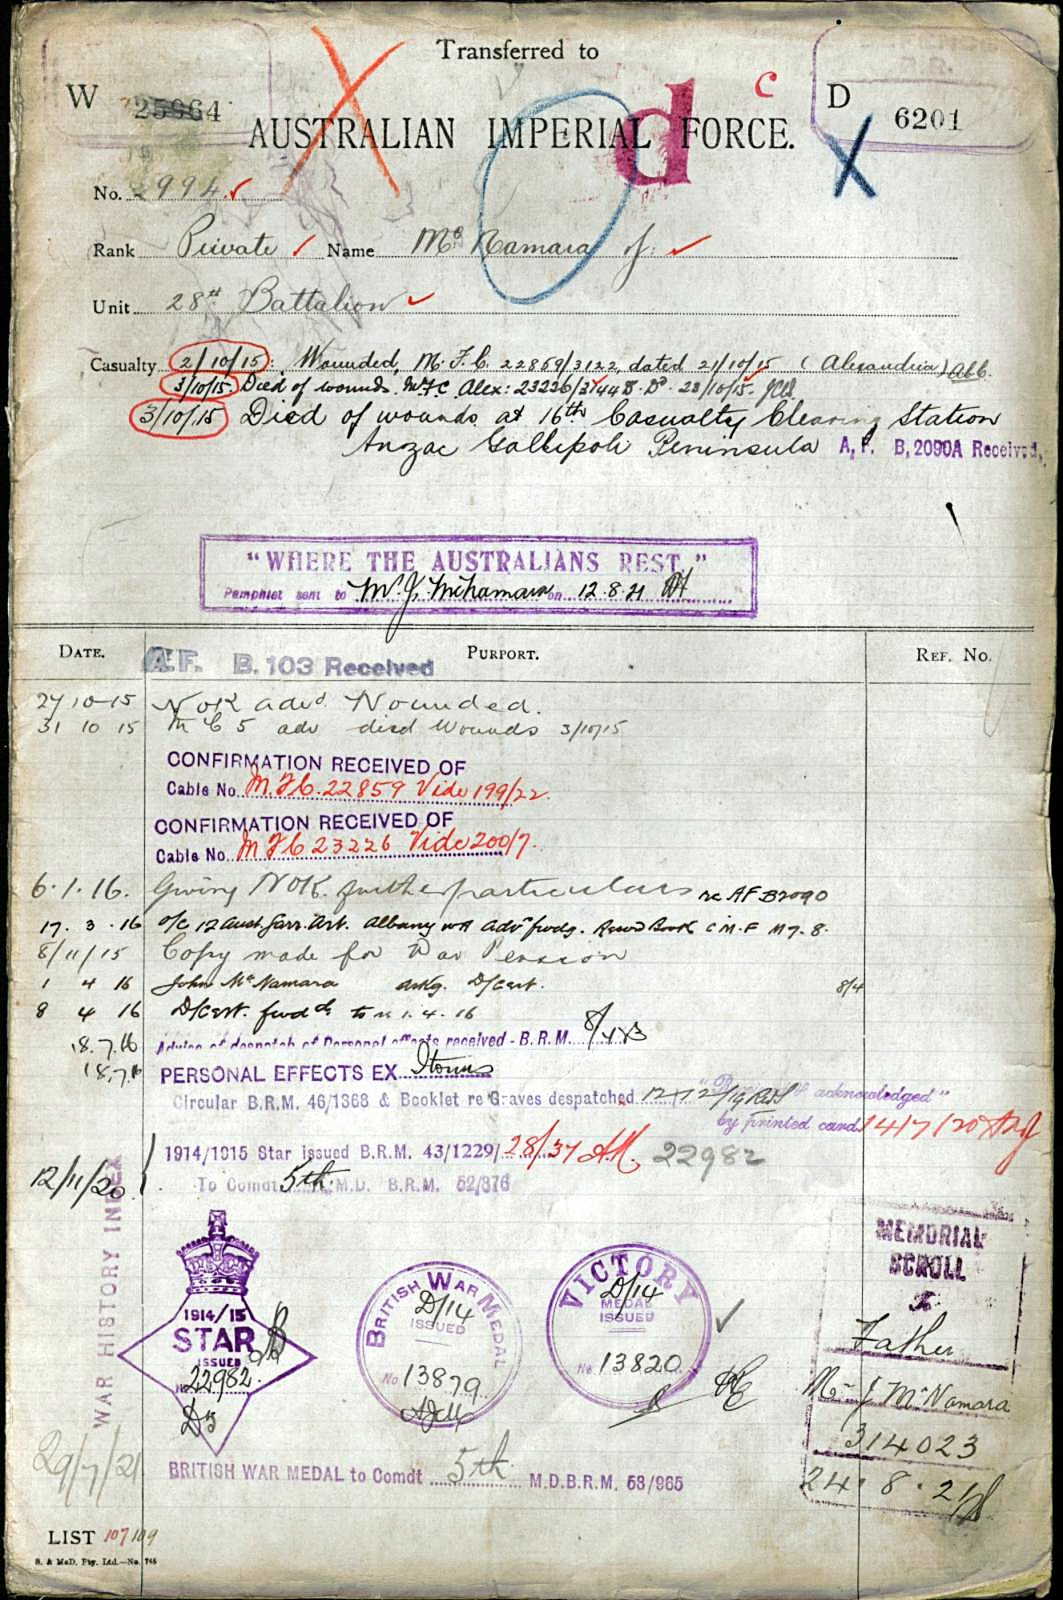 Transferred to
W 25964
D 6201
c
d
AUSTRALIAN IMPERIAL FORCE.
No. 994
Rank Private Name McNamara J.
Unit 28th Battalion
Casualty 2/10/15: Wounded, M.F.C. 22859/3122, dated 21/10/15 (Alexandria)
3/10/15. Died of wounds. MFC Alex: 23226/3144B. D° 28/10/15.
3/10/15 Died of wounds at 16th Casualty Clearing Station
Anzac Gallipoli Peninsula A.F. B.2090A Received.
"WHERE THE AUSTRALIANS REST."
Pamphlet sent to Mr J. McNamara on 12.8.21
DATE. PURPORT. REF. NO.
A.F. B.103 Received
27 10 15 NOK advd Wounded.
31 10 15 adv died Wounds 3/10/15
CONFIRMATION RECEIVED OF
Cable No. M.F.C. 22859 Vide 199/22.
CONFIRMATION RECEIVED OF
Cable No. M F C 23226 Vide 200/7.
6.1.16. Giving NOK. further particulars re AF B2090
17.3.16 o/c 12 Aust. Garr. Art. Albany adv fwdg. Record Book C.M.F M 7.8.
8/11/15 Copy made for War Pension
1 4 16 John McNamara askg. D/Cert. 8/4
8 4 16 D/Cert. fwdd to 1.4.16
18.7.16 Advice of despatch of Personal effects received - B.R.M.
18.7.16 PERSONAL EFFECTS EX
Circular B.R.M. 46/1368 & Booklet re Graves despatched
acknowledged"
by printed card 14/7/20
1914/1915 Star issued B.R.M. 43/1229/28/37 22982
12/11/20 To Comdt. 5th M.D. B.R.M. 52/376
WAR HISTORY INDEX
1914/15
STAR
ISSUED
No 22982
BRITISH WAR MEDAL
D/14
ISSUED
No 13879
VICTORY
D/14
MEDAL
ISSUED
No 13820
MEMORIAL
SCROLL
Father
Mr J McNamara
314023
24.8.21
29/7/21 BRITISH WAR MEDAL to Comdt 5th M.D.B.R.M. 53/965
LIST 107 109
S. & McD. Pty. Ltd.—No. 745